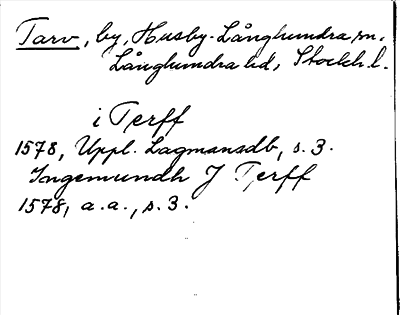 Tarv, by, Husby-Långhundra sn.
Långhundra hd, Stockh. l.
i Terff
1578, Uppl. Lagmansdb, s. 3.
Ingemundh J Terff
1578, a. a., s. 3.